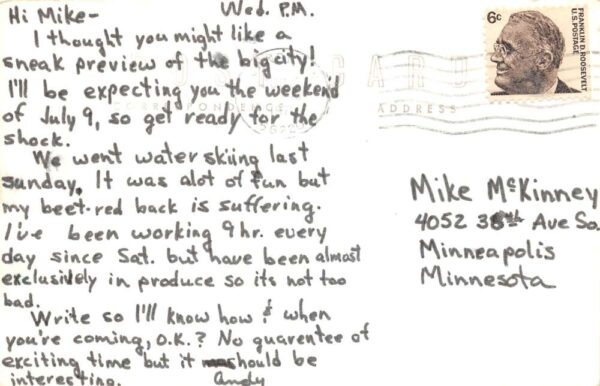 Hi Mike- Wed. P.M.
I thought you might like a
sneak preview of the big city!
I'll be expecting you the weekend
of July 9, so get ready for the
shock.
We went water skiing last
sunday. It was alot of fun but
my beet-red back is suffering.
I've been working 9 hr. every
day since Sat. but have been almost
exclusively in produce so its not too
bad.
Write so I'll know how & when
you're coming, O.K.? No guarentee of
exciting time but it should be
interesting. Andy
POST CARD
CORRESPONDENCE
ADDRESS
6c
FRANKLIN D. ROOSEVELT
U.S. POSTAGE
Mike McKinney
4052 Ave So.
Minneapolis
Minnesota